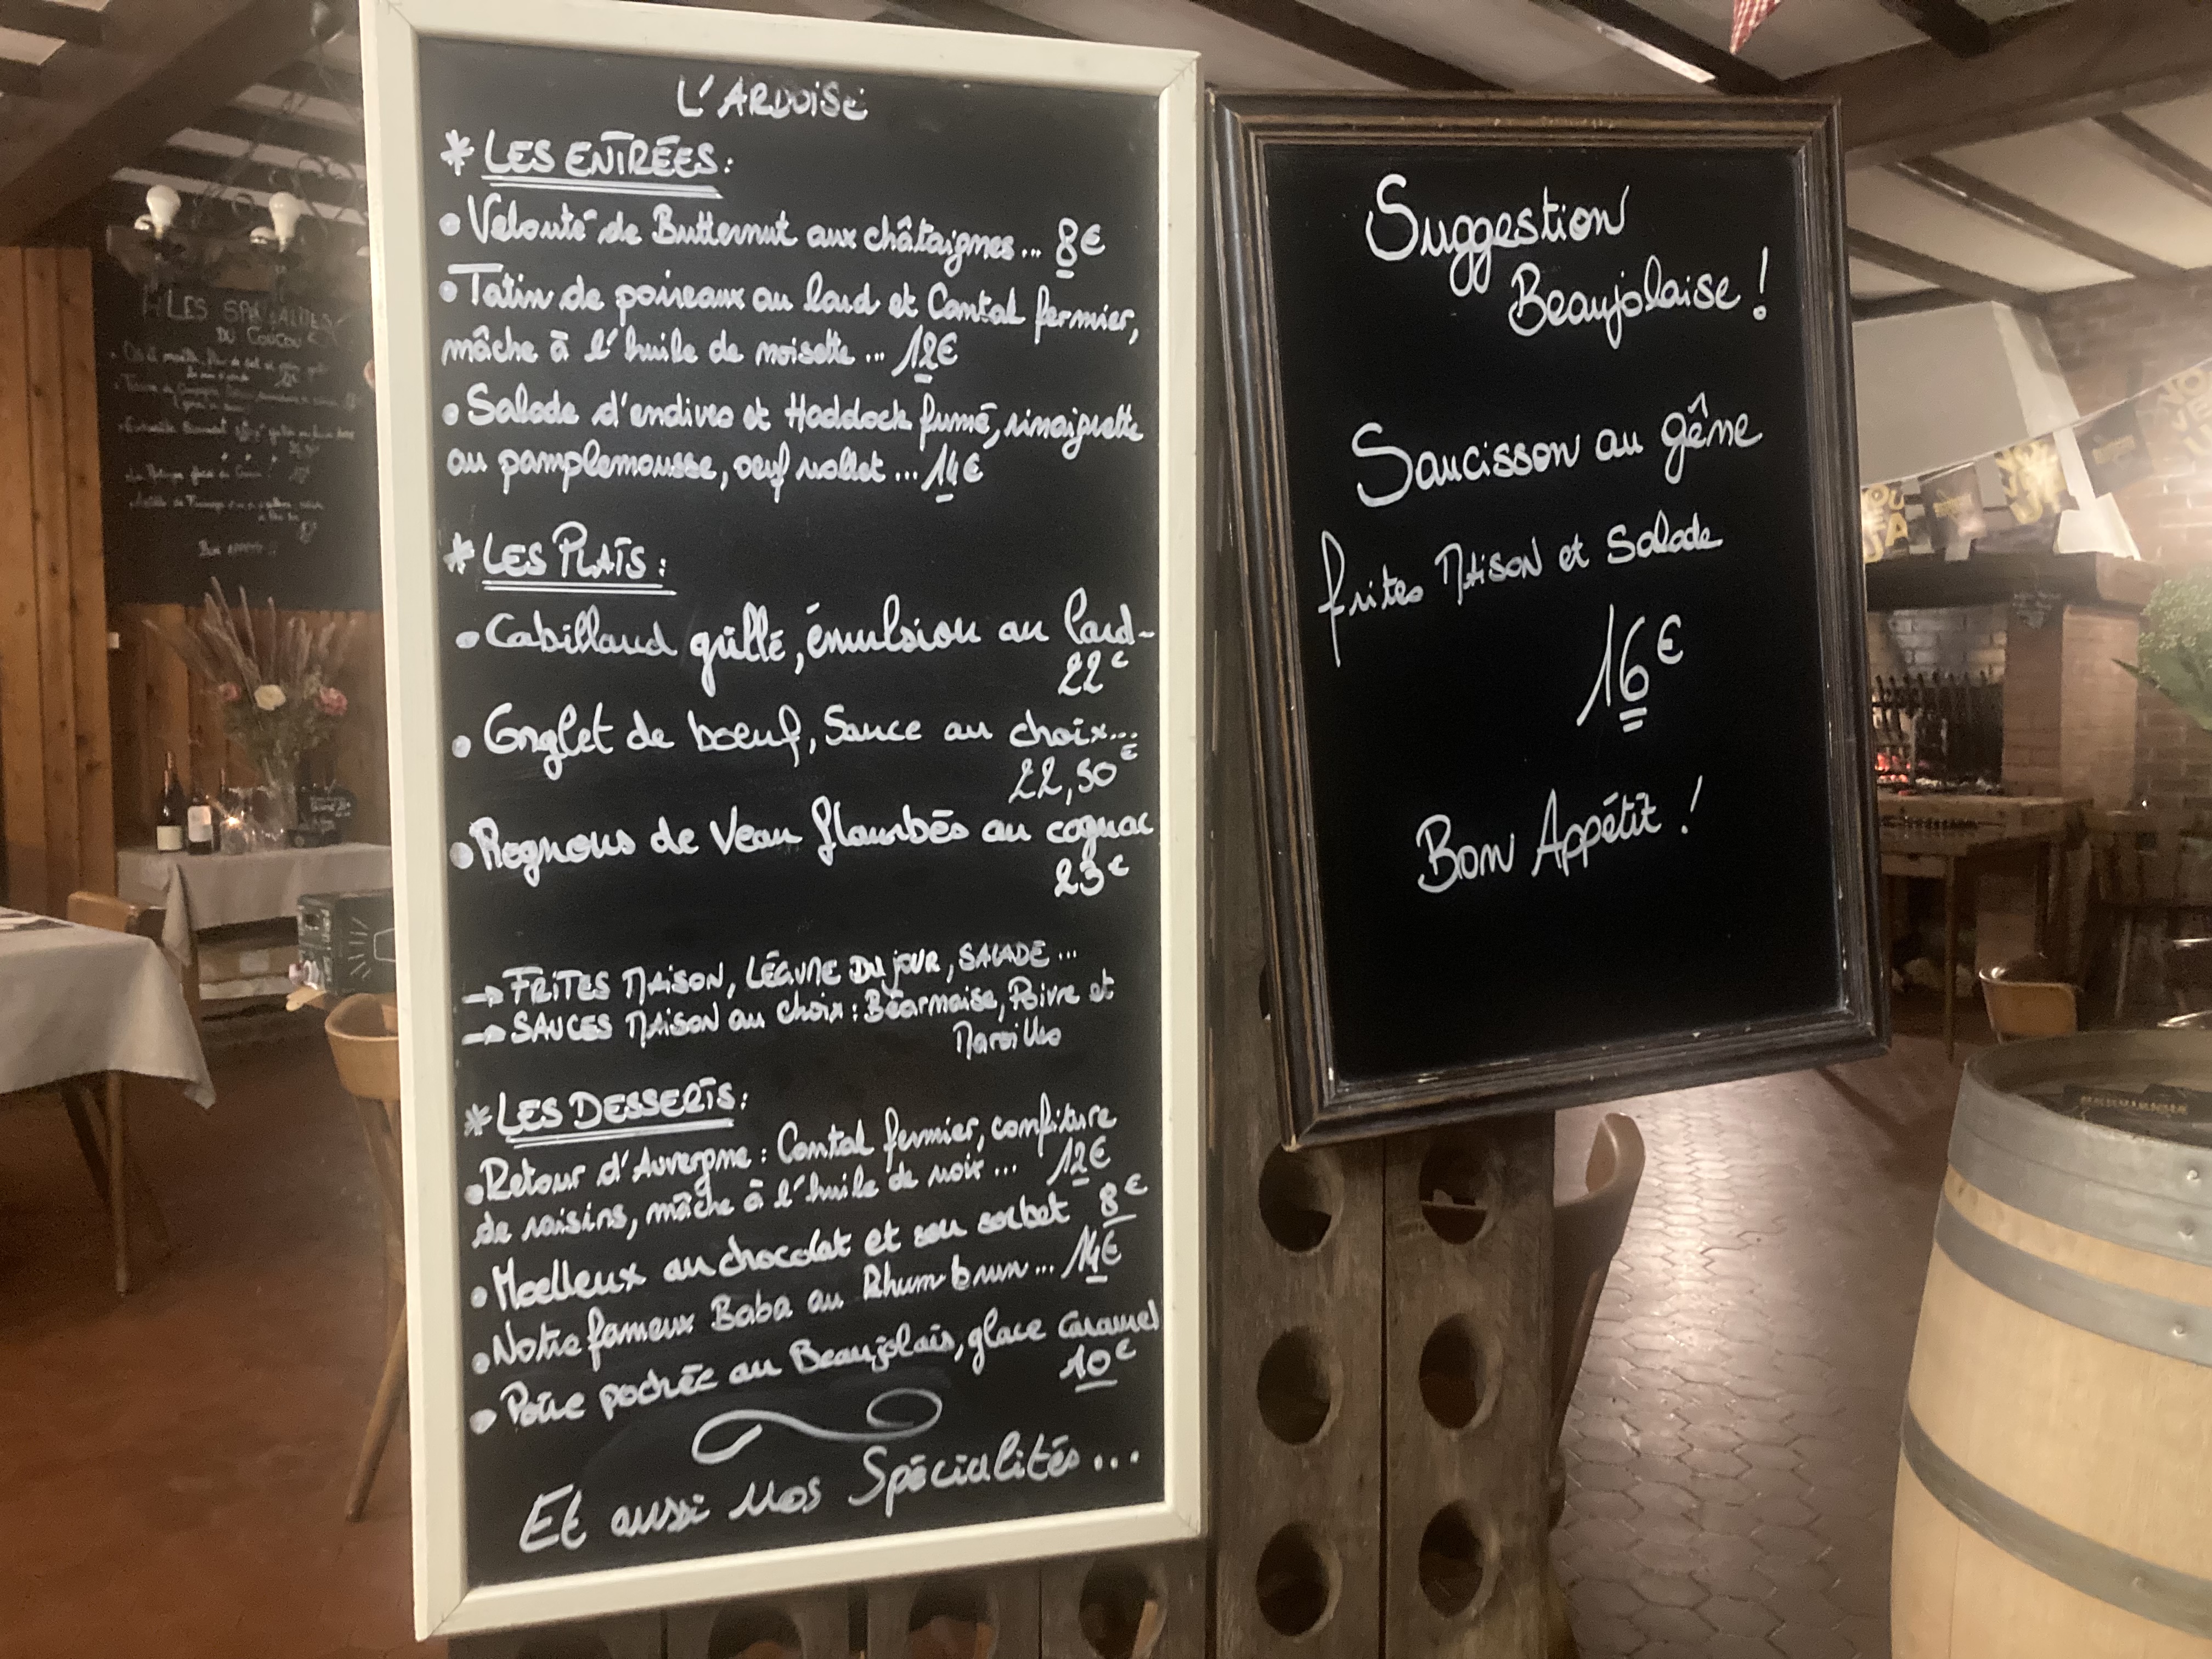 L'ARDOISE
* LES ENTRÉES:
• Velouté de Butternut aux châtaignes... 8€
• Tatin de poireaux au lard et Cantal fermier,
mâche à l'huile de noisette... 12€
• Salade d'endives et Haddock fumé, vinaigrette
au pamplemousse, oeuf mollet... 14€
* LES PLATS:
• Cabillaud grillé, émulsion au lard-
22€
• Onglet de boeuf, Sauce au choix...
22,50€
• Rognons de Veau flambés au cognac
23€
→ FRITES MAISON, LÉGUME DU jour, SALADE...
→ SAUCES MAISON au choix: Béarnaise, Poivre et
Maroilles
* LES DESSERTS:
• Retour d'Auvergne: Cantal fermier, confiture
de raisins, mâche à l'huile de noix... 12€
• Moelleux au chocolat et son sorbet 8€
• Notre fameux Baba au Rhum brun... 14€
• Poire pochée au Beaujolais, glace caramel
10€
Et aussi Nos Spécialités...
Suggestion
Beaujolaise!
Saucisson au gêne
frites MAISON et Salade
16€
Bon Appétit!
LES SPÉCIALITÉS
DU COUCOU